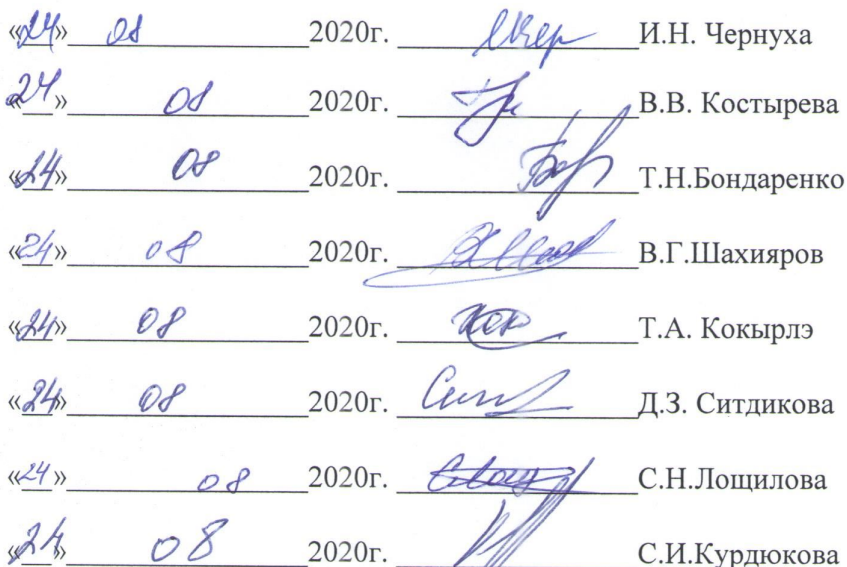 «24» 08 2020г. И.Н. Чернуха
«24» 08 2020г. В.В. Костырева
«24» 08 2020г. Т.Н.Бондаренко
«24» 08 2020г. В.Г.Шахияров
«24» 08 2020г. Т.А. Кокырлэ
«24» 08 2020г. Д.З. Ситдикова
«24» 08 2020г. С.Н.Лощилова
«24» 08 2020г. С.И.Курдюкова